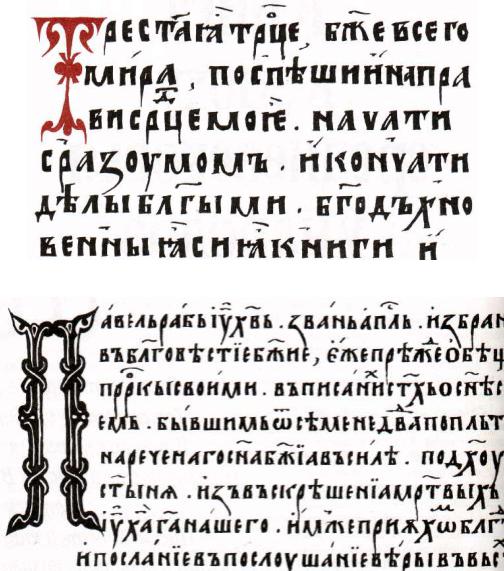 Трест҃аꙗ тр҃оце, б҃же всего
мира, поспѣши и напра
ви ср҃це мое҆. наѵати
с̾разоумомъ. и҆ конѵати
дѣлы бл҃гыми. б҃годъхно
венныꙗ сиꙗ книги и҆
Па́вельрабъ і҆у҃ х҃въ. зва́нъ а҆п҃лъ. и҆збран
въбл҃говѣстїе б҃жие, е҆́же пре́жде ѻ҆бѣц
прр҃кы своими. въписанїи ст҃хъ ѡ҆ сн҃ѣ с
емь. бы́вшимь ѿ сѣмене дв҃да поплът
нареченаго сн҃а б҃жїа въ силѣ. подх҃оу
ст҃ыня. и҆зъ въскр҃ешенїа мр҃твыхъ
і҆у҃ х҃а г҃а нашего. и҆мже прия́хѡⷨ бл҃г
и҆ посла́нїе въ послоуша́нїе вѣ́ры въ вьс